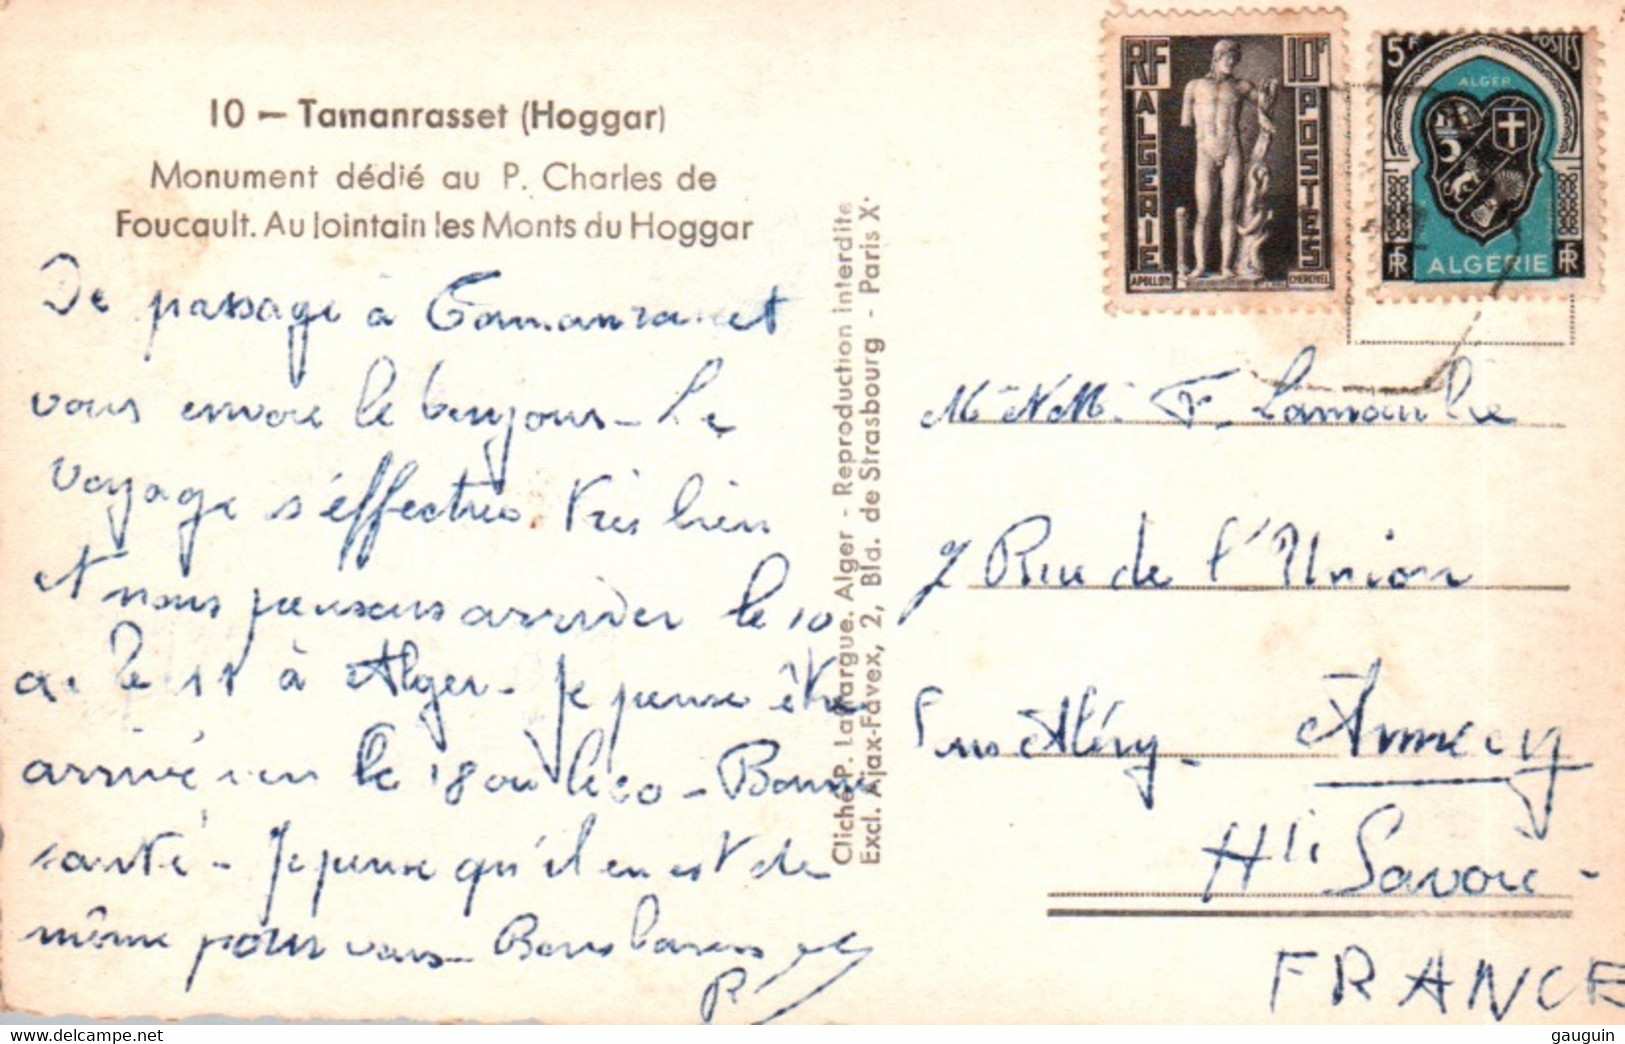 10 — Tamanrasset (Hoggar)
Monument dédié au P. Charles de
Foucault. Au lointain les Monts du Hoggar
De passage à Tamanrasset
vous envoie le bonjour - Le
voyage s'effectue très bien
et nous pensons arriver le 10
le 11 à Alger - Je pense être
arrivé le 18 ou le 20 - Bonne
santé - Je pense qu'il en est de
même pour vous - Bons baisers
Cliché P. Lafargue. Alger - Reproduction interdite
Excl. Ajax-Favex, 2, Bld. de Strasbourg - Paris X.
RF
10F
ALGERIE
POSTES
APOLLON
CHERCHEL
5F
POSTES
ALGER
RF
ALGERIE
RF
F. Lamouille
7 Rue de l'Union
Annecy
Hte Savoie -
FRANCE
www.delcampe.net
gauguin